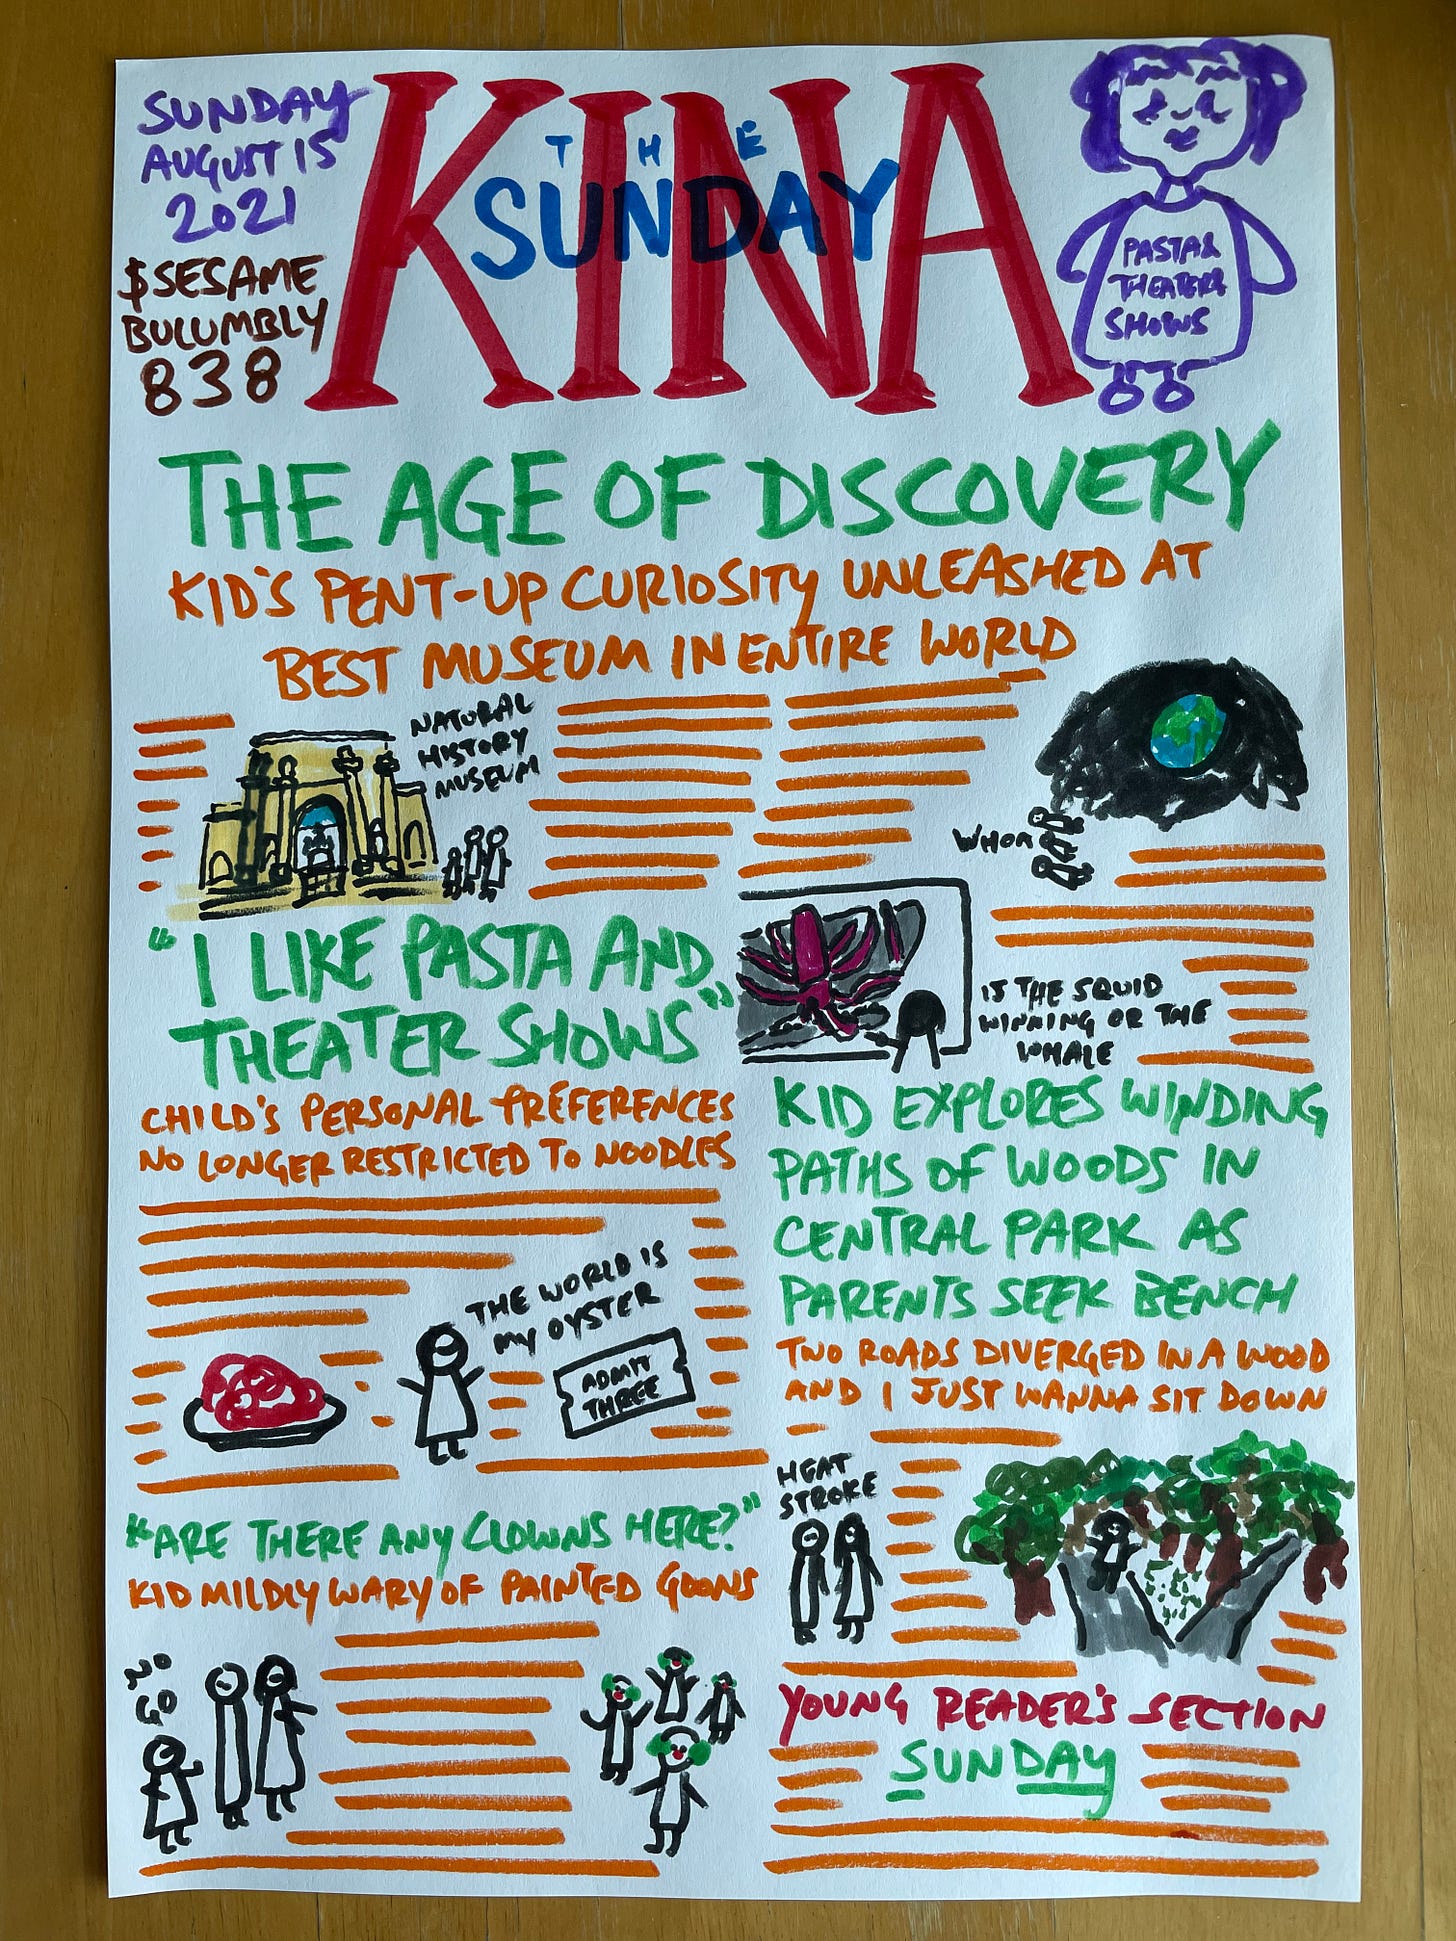 SUNDAY
AUGUST 15
2021
$SESAME
BULUMBLY
838
THE
SUNDAY
KINA
PASTA &
THEATER
SHOWS
THE AGE OF DISCOVERY
KID'S PENT-UP CURIOSITY UNLEASHED AT
BEST MUSEUM IN ENTIRE WORLD
NATURAL
HISTORY
MUSEUM
WHOA
IS THE SQUID
WINNING OR THE
WHALE
"I LIKE PASTA AND
THEATER SHOWS"
CHILD'S PERSONAL PREFERENCES
NO LONGER RESTRICTED TO NOODLES
THE WORLD IS
MY OYSTER
ADMIT
THREE
"ARE THERE ANY CLOWNS HERE?"
KID MILDLY WARY OF PAINTED GOONS
NO
GO
KID EXPLORES WINDING
PATHS OF WOODS IN
CENTRAL PARK AS
PARENTS SEEK BENCH
TWO ROADS DIVERGED IN A WOOD
AND I JUST WANNA SIT DOWN
HEAT
STROKE
YOUNG READER'S SECTION
SUNDAY